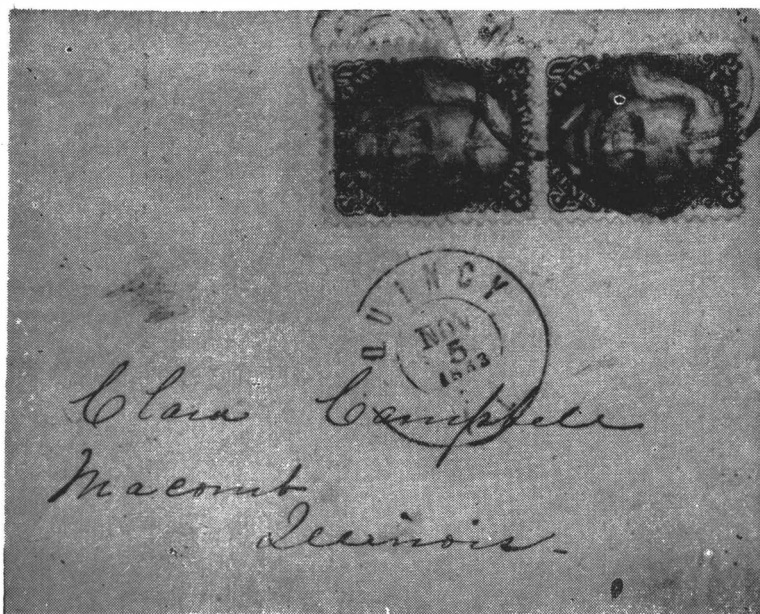 QUINCY
NOV
5
1863
Clara Campbell
Macomb
Illinois.